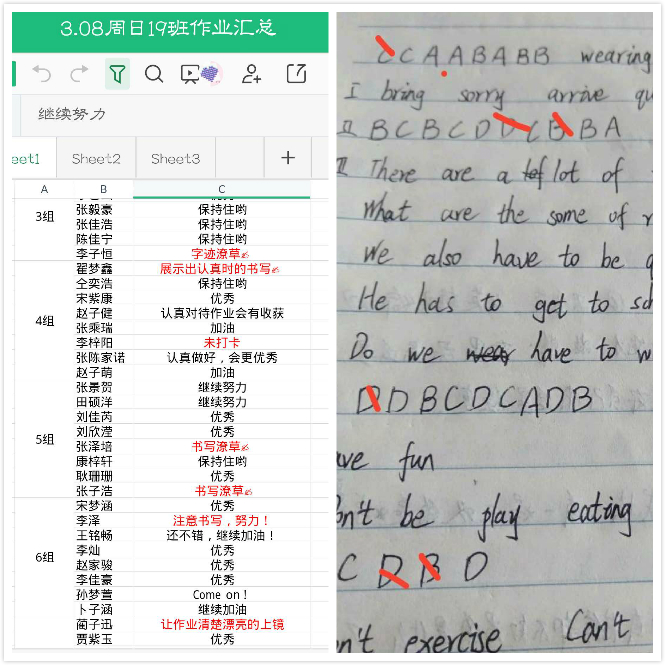 3.08周日19班作业汇总
继续努力
eet1 Sheet2 Sheet3 +
A B C
3组
张毅豪 保持住哟
张佳浩 保持住哟
陈佳宁 保持住哟
李子恒 字迹潦草✍
4组
翟梦鑫 展示出认真时的书写✍
仝奕浩 保持住哟
宋紫康 优秀
赵子健 认真对待作业会有收获
张乘瑞 加油
李梓阳 未打卡
张陈家诺 认真做好，会更优秀
赵子萌 加油
5组
张景贺 继续努力
田硕洋 继续努力
刘佳芮 优秀
刘欣滢 优秀
张泽培 书写潦草✍
康梓轩 保持住哟
耿珊珊 优秀
张子浩 书写潦草✍
6组
宋梦涵 优秀
李泽 注意书写，努力！
王铭畅 还不错，继续加油！
李灿 优秀
赵家骏 优秀
李佳豪 优秀
孙梦萱 Come on！
卜子涵 继续加油
蔺子迅 让作业清楚漂亮的上镜
贾紫玉 优秀
C C A A B A B B wearing
I bring sorry arrive qu
II B C B C D D C B B A
III There are a lot of
What are the some of r
We also have to be q
He has to get to sch
Do we have to w
D D B C D C A D B
ve fun
n't be play eating
C D B D
n't exercise Can't